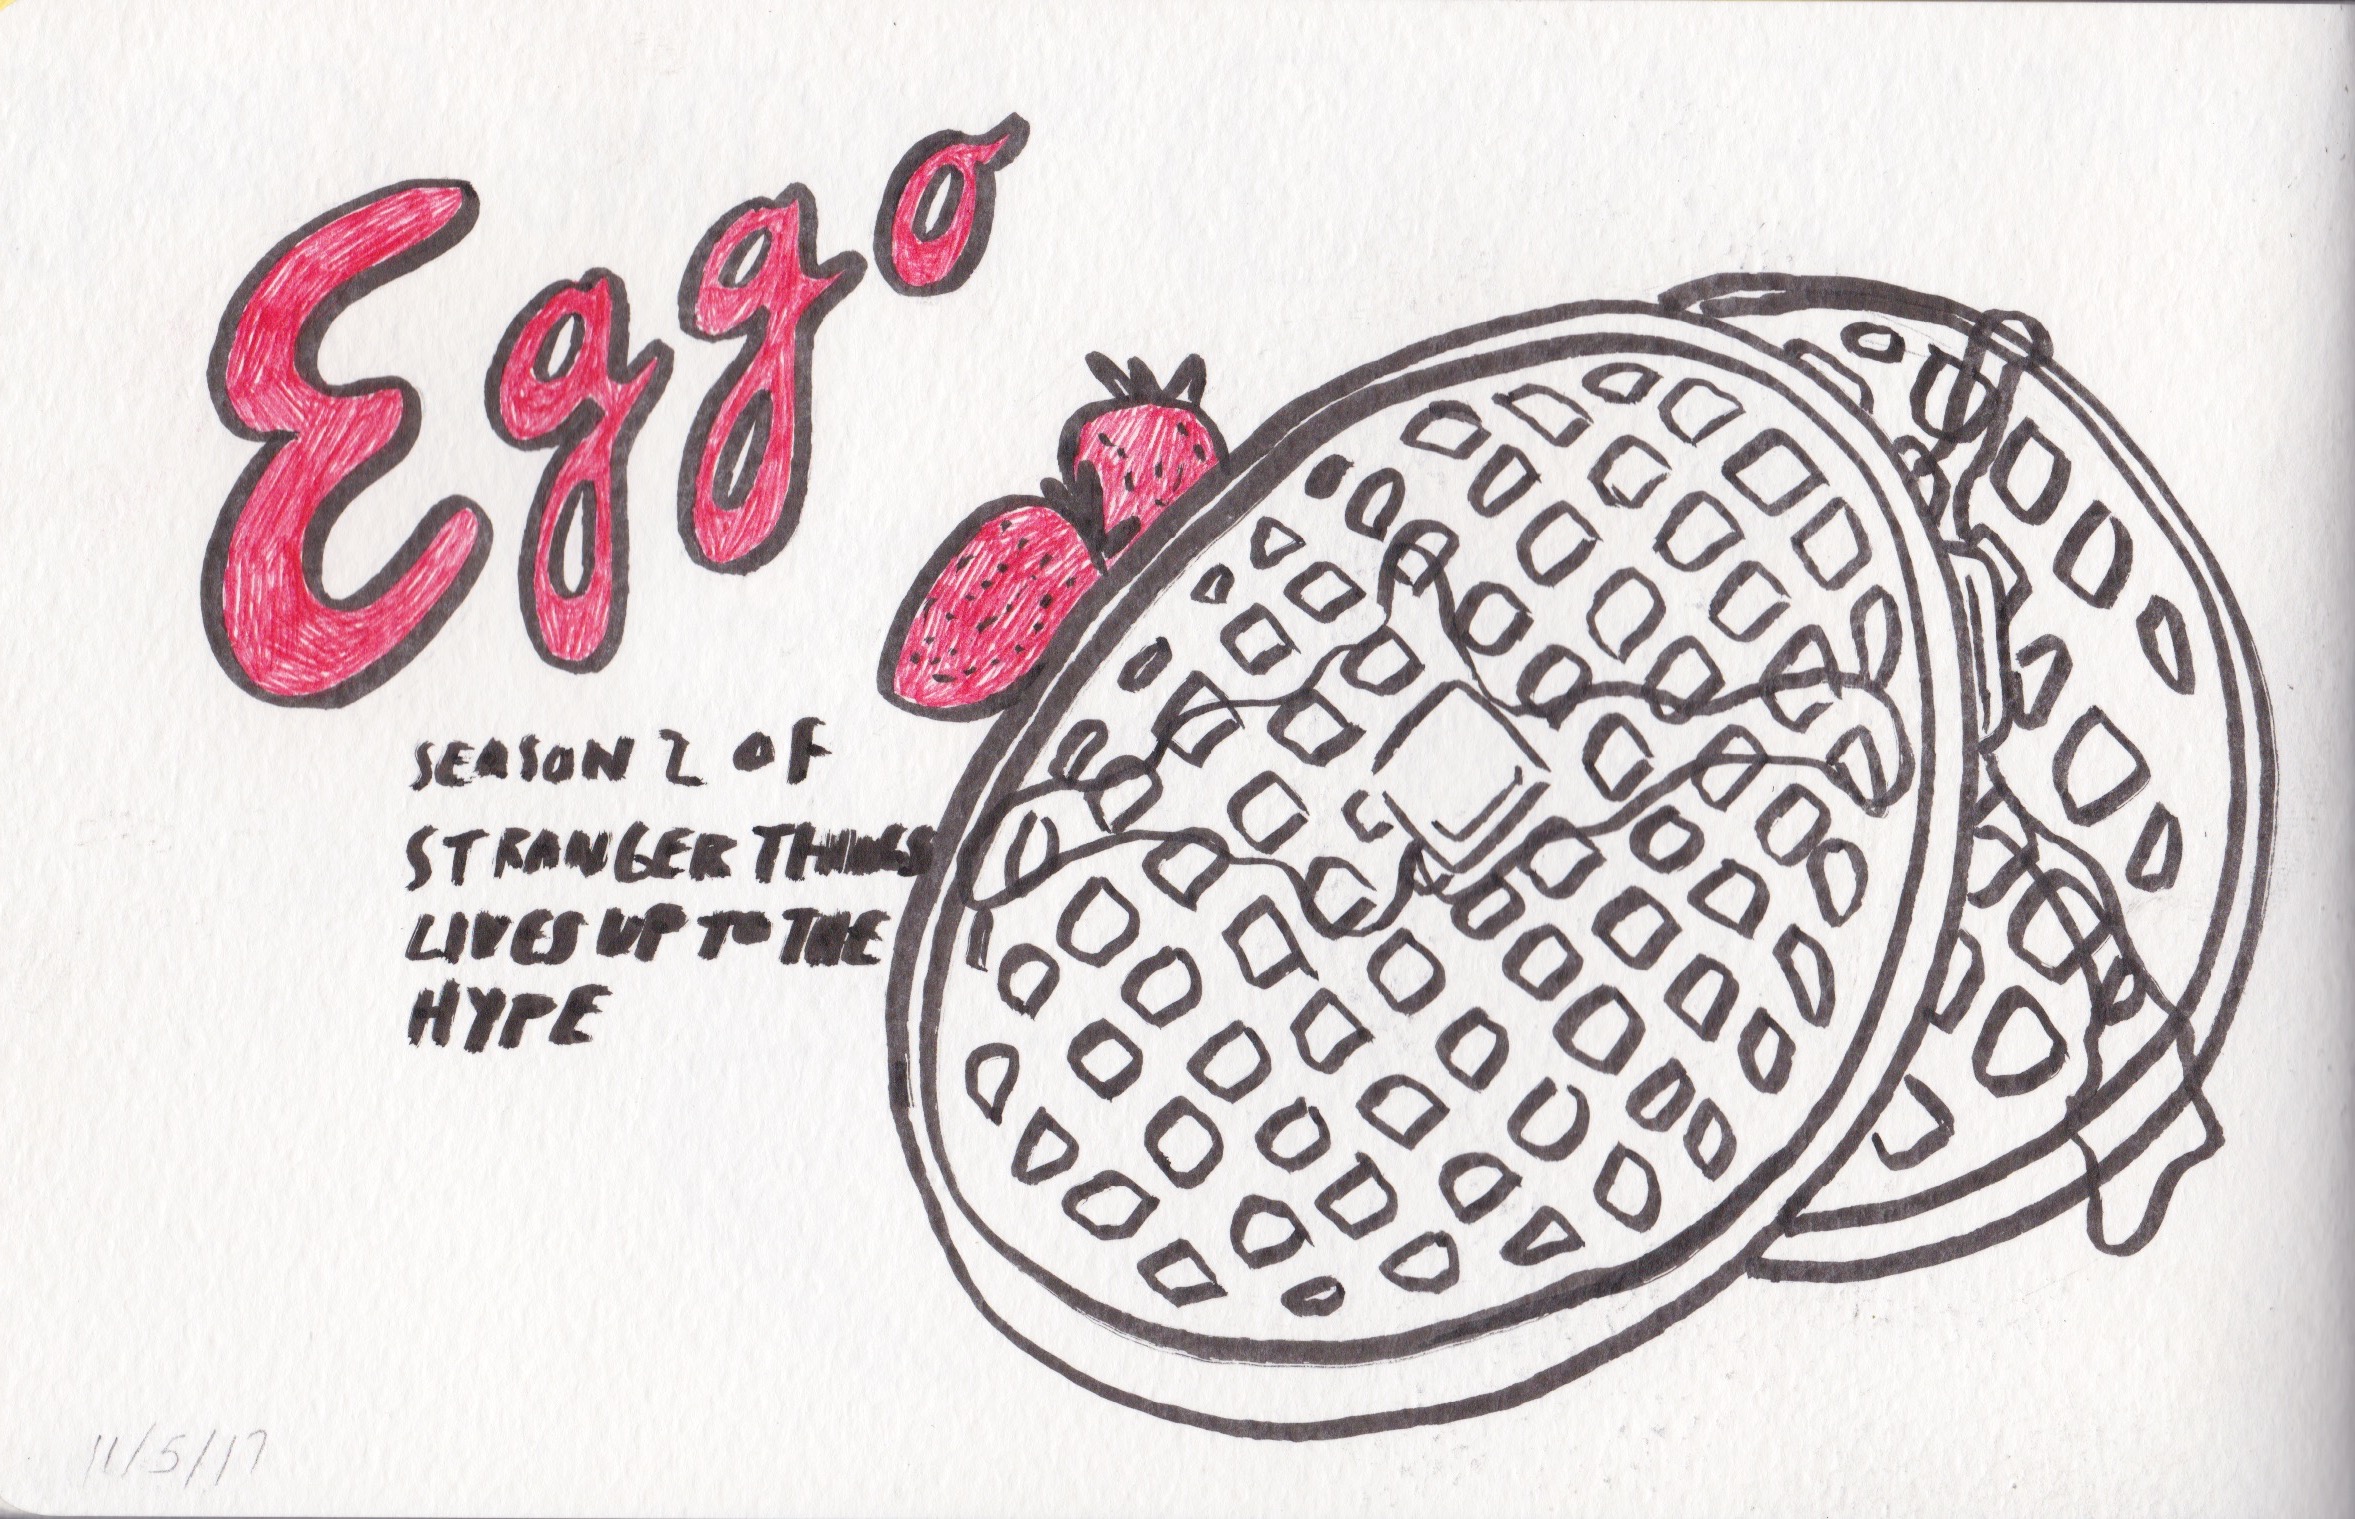 Eggo
SEASON 2 OF
STRANGER THINGS
LIVES UP TO THE
HYPE
11/5/17